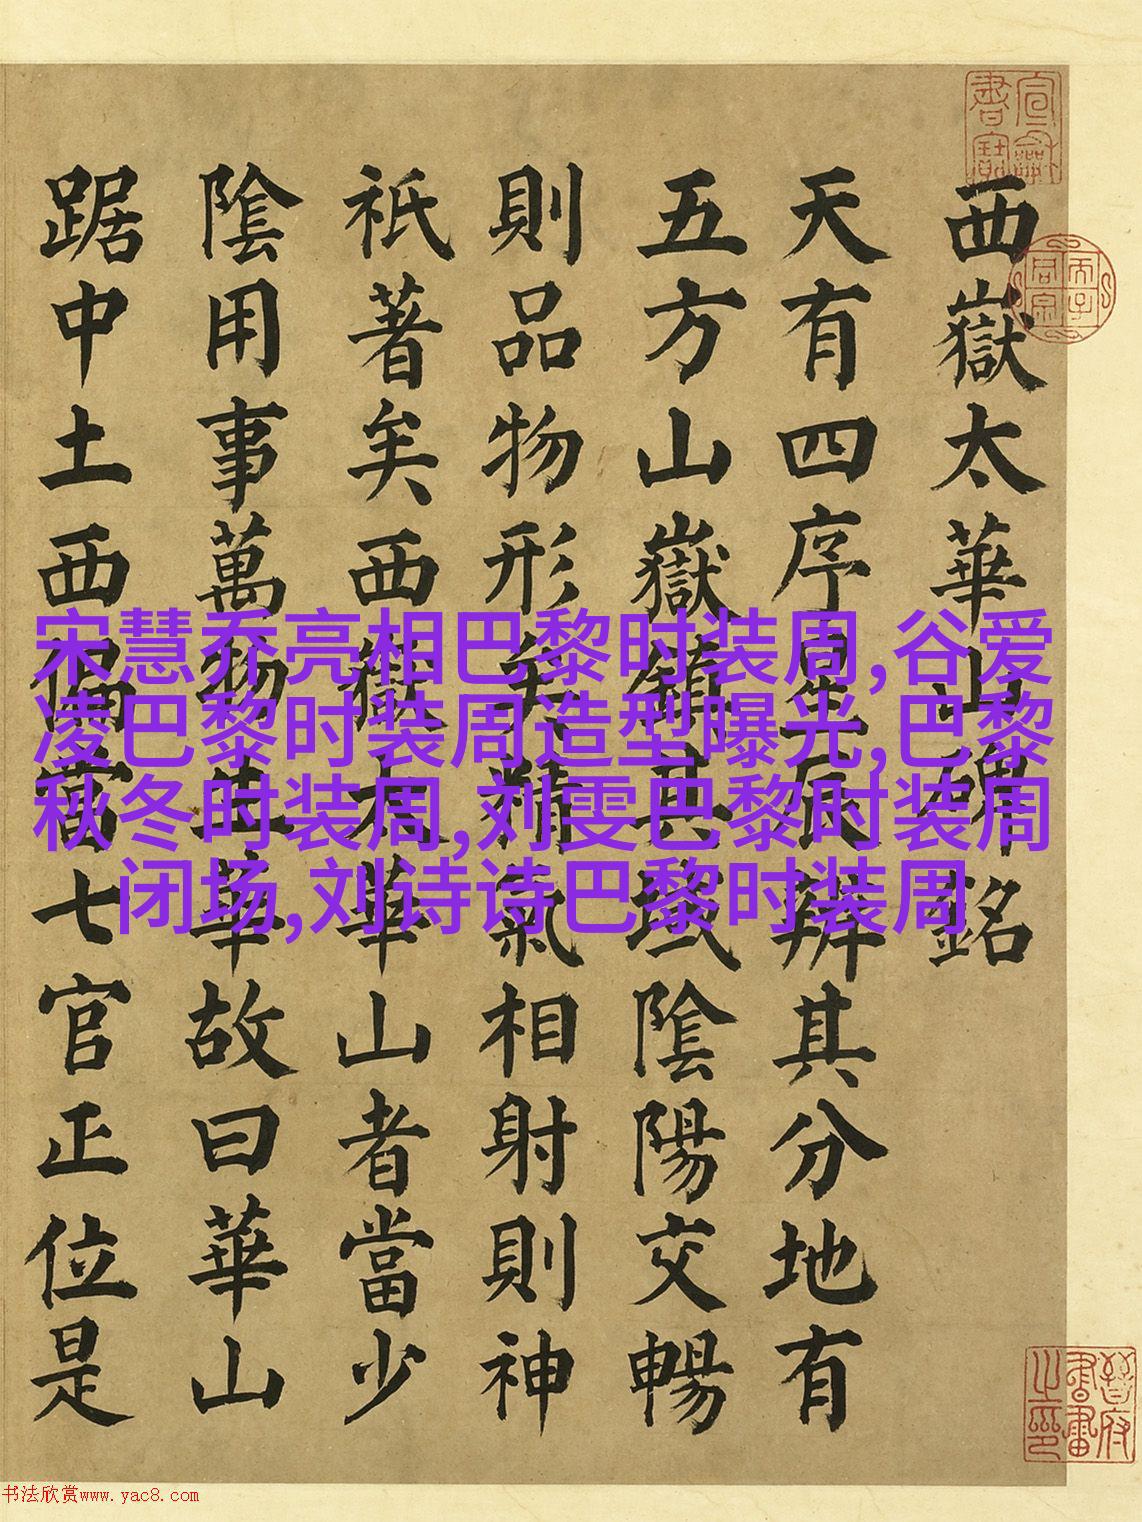 西嶽太華山碑銘
天有四序星辰辨其分地有
五方山嶽鎮其域陰陽交暢
則品物形矣精氣相射則神
祇著矣西嶽太華山者當少
陰用事萬物生華故曰華山
踞中土西偏七官正位是
宋慧乔亮相巴黎时装周,谷爱
凌巴黎时装周造型曝光,巴黎
秋冬时装周,刘雯巴黎时装周
闭场,刘诗诗巴黎时装周
晉府書畫之印
书法欣赏www.yac8.com